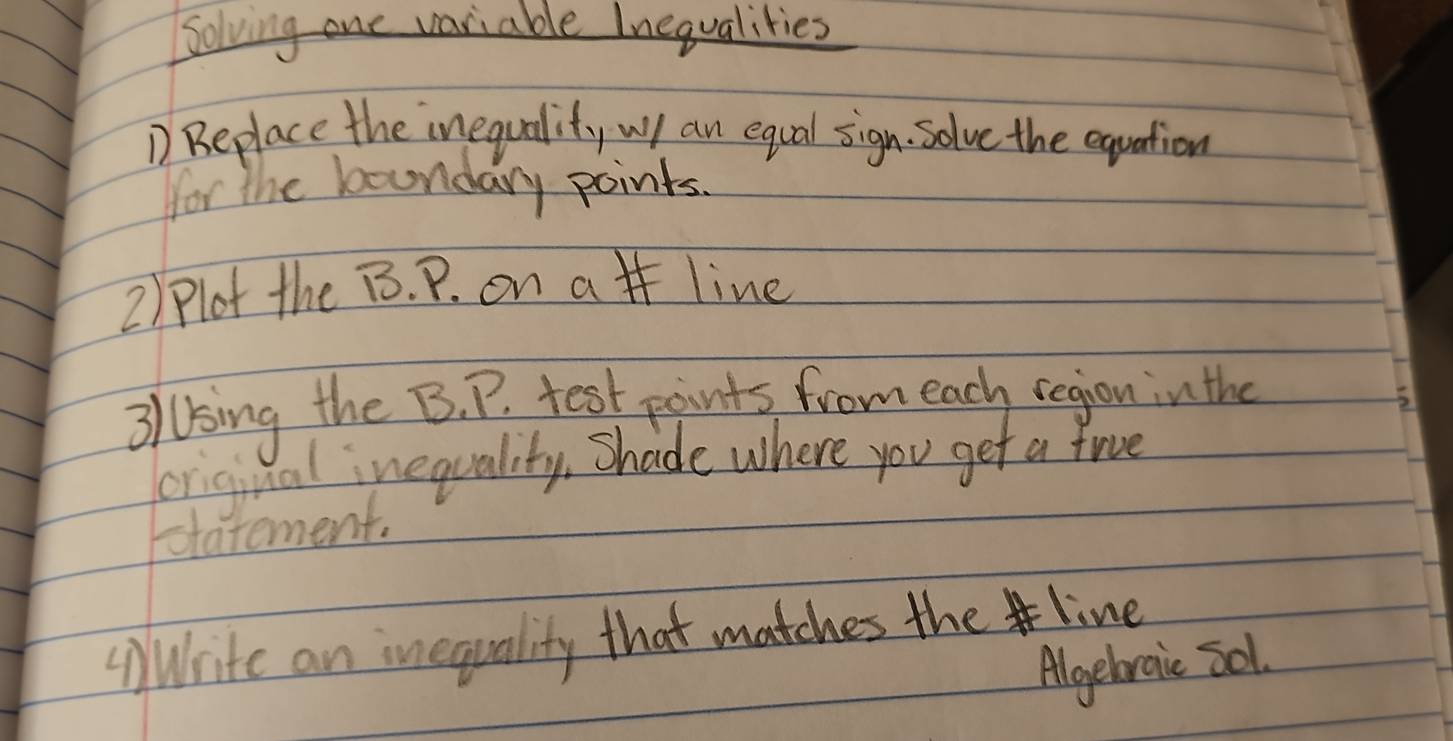 Solving one variable Inequalities
1) Replace the inequality w/ an equal sign. Solve the equation
for the boundary points.
2) Plot the B.P. on a # line
3) Using the B.P. test points from each region in the
original inequality. Shade where you get a true
statement.
4) Write an inequality that matches the # line
Algebraic Sol.